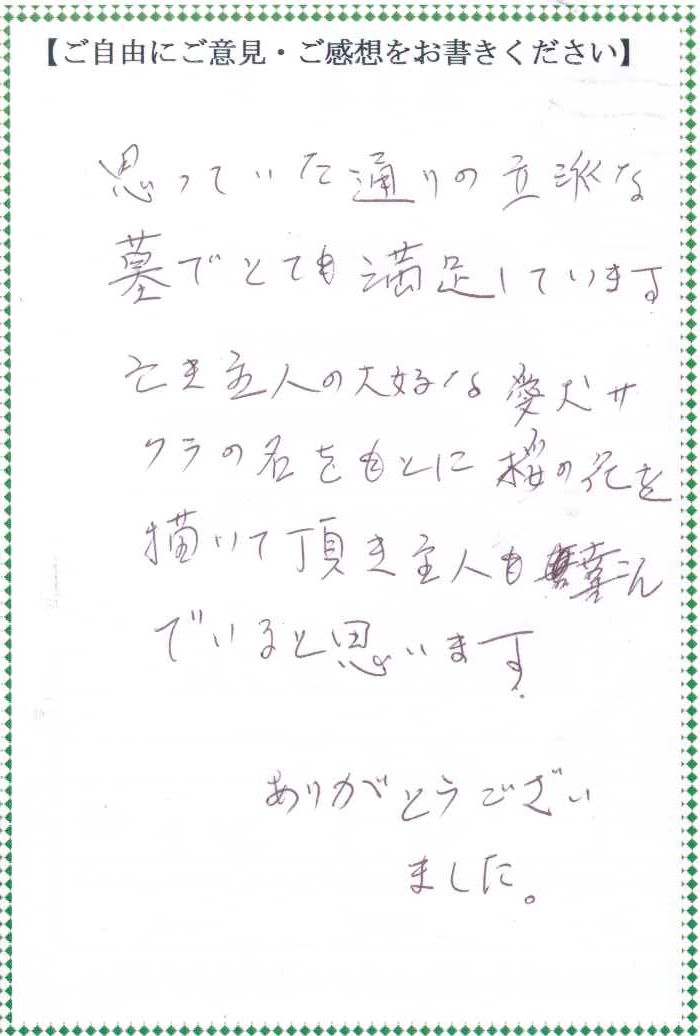 【ご自由にご意見・ご感想をお書きください】
思っていた通りの立派な
墓でとても満足しています
亡き主人の大好な愛犬サ
クラの名をもとに桜の花を
描いて頂き主人も喜こん
でいると思います.
ありがとうござい
ました。